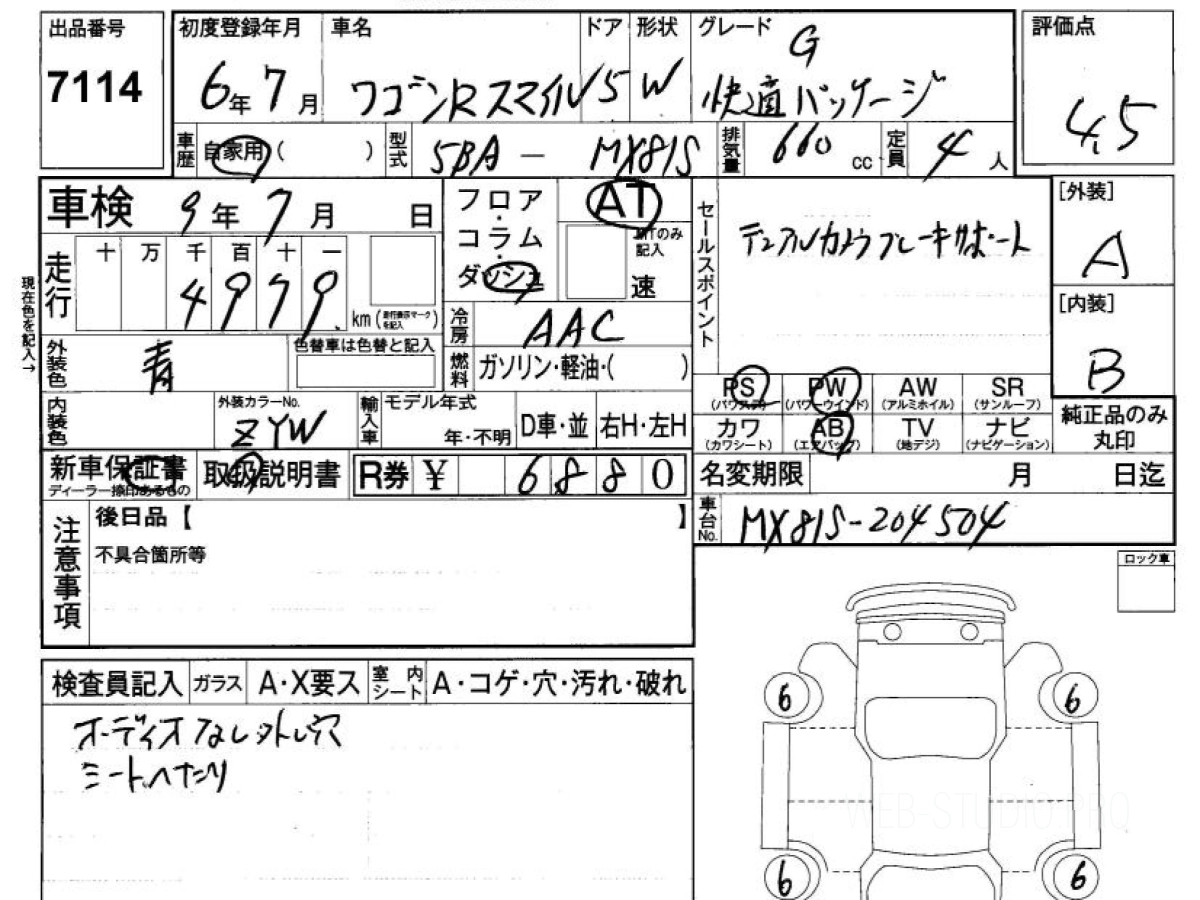 出品番号 初度登録年月 車名 ドア 形状 グレード 評価点
7114 6年7月 ワゴンRスマイル 5 W G
快適パッケージ 4.5
車歴 自家用( ) 型式 5BA － MX81S 排気量 660 cc 定員 4人
車検 9年7月 日
フロア・コラム・ダッシュ AT
MTのみ記入
速
セールスポイント デュアルカメラブレーキサポート
[外装]
A
[内装]
B
現在色を記入→
走行 十 万 千 百 十 一
4979 km(走行表示マークを記入)
冷房 AAC
外装色 青 色替車は色替と記入
燃料 ガソリン・軽油・( )
PS PW AW SR
(パワステ) (パワーウインド) (アルミホイル) (サンルーフ)
カワ AB TV ナビ
(カワシート) (エアバッグ) (地デジ) (ナビゲーション)
純正品のみ
丸印
内装色 外装カラーNo. ZYW 輸入車 モデル年式 年・不明 D車・並 右H・左H
新車保証書 取扱説明書 R券 ¥ 6880
ディーラー捺印あるもの
名変期限 月 日迄
車台No. MX81S-204504
注意事項
後日品【 】
不具合箇所等
ロック車
検査員記入 ガラス A・X要ス 室内シート A・コゲ・穴・汚れ・破れ
オーディオなし外し穴
シートヘたり
6 6
WEB-STUDIO.PRO
6 6